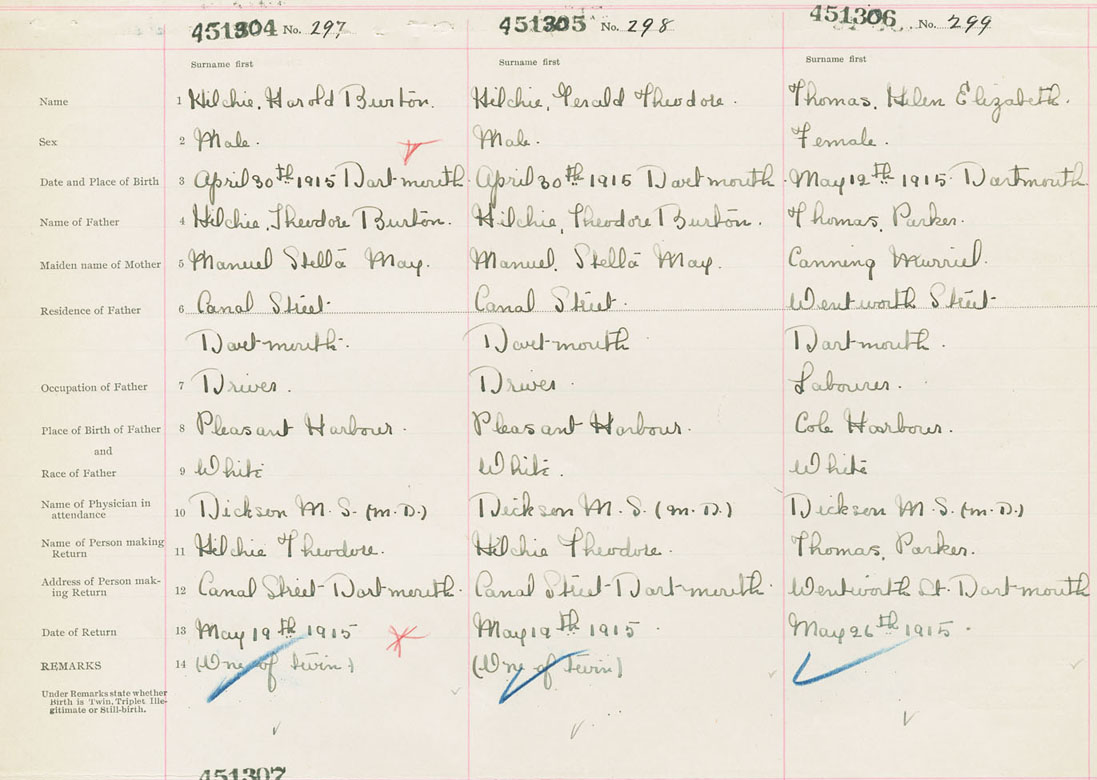 451304 No. 297
451305 No. 298
451306 No. 299
Surname first
Surname first
Surname first
Name 1 Hilchie, Harold Burton. Hilchie, Gerald Theodore. Thomas, Helen Elizabeth.
Sex 2 Male. Male. Female.
Date and Place of Birth 3 April 30th 1915 Dartmouth. April 30th 1915 Dartmouth. May 12th 1915. Dartmouth
Name of Father 4 Hilchie, Theodore Burton. Hilchie, Theodore Burton. Thomas, Parker.
Maiden name of Mother 5 Manuel Stella May. Manuel, Stella May. Canning Murriel.
Residence of Father 6 Canal Street Canal Street. Wentworth Street
Dartmouth. Dartmouth Dartmouth.
Occupation of Father 7 Driver. Driver. Labourer.
Place of Birth of Father 8 Pleasant Harbour. Pleasant Harbour. Cole Harbour.
and
Race of Father 9 White White. White
Name of Physician in
attendance 10 Dickson M. S. (M.D.) Dickson M. S. (M.D.) Dickson M. S. (M.D.)
Name of Person making
Return 11 Hilchie Theodore. Hilchie Theodore. Thomas, Parker.
Address of Person mak-
ing Return 12 Canal Street Dartmouth. Canal Street Dartmouth. Wentworth St. Dartmouth
Date of Return 13 May 19th 1915 May 19th 1915. May 26th 1915.
REMARKS 14 (One of twin) (One of twin)
Under Remarks state whether
Birth is Twin, Triplet Ille-
gitimate or Still-birth.
451307